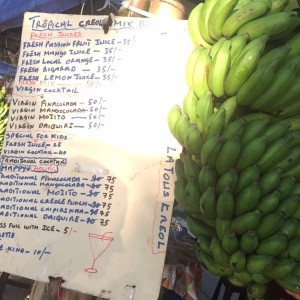 TROPICAL CREOL MIX
FRESH JUICES
FRESH PASSION FRUIT JUICE - 35
FRESH MANGO JUICE - 35
FRESH LOCAL ORANGE - 35/-
FRESH BIGARAD - 35/-
FRESH LEMON JUICE - 35/-
VIRGIN COCKTAIL
VIRGIN PINACOLADA - 50/-
VIRGIN MANGOCOLADA - 50/-
VIRGIN MOJITO - 50/-
VIRGIN DAIQUIRI - 50/-
SPECIAL FOR KIDS
FRESH JUICE - 25
VIRGIN COCKTAIL - 40
TRADITIONAL COCKTAIL
HAPPY HOURS
TRADITIONAL PINACOLADA - 90 75
TRADITIONAL MANGOLADA - 90 75
TRADITIONAL MOJITO - 90 75
TRADITIONAL CREOLE PUNCH - 90 75
TRADITIONAL CAIPIRINHA - 90 75
TRADITIONAL DAIQUIRE - 90 75
FULL WITH ICE - 5/-
KING - 10/-
LATOUS EREOL